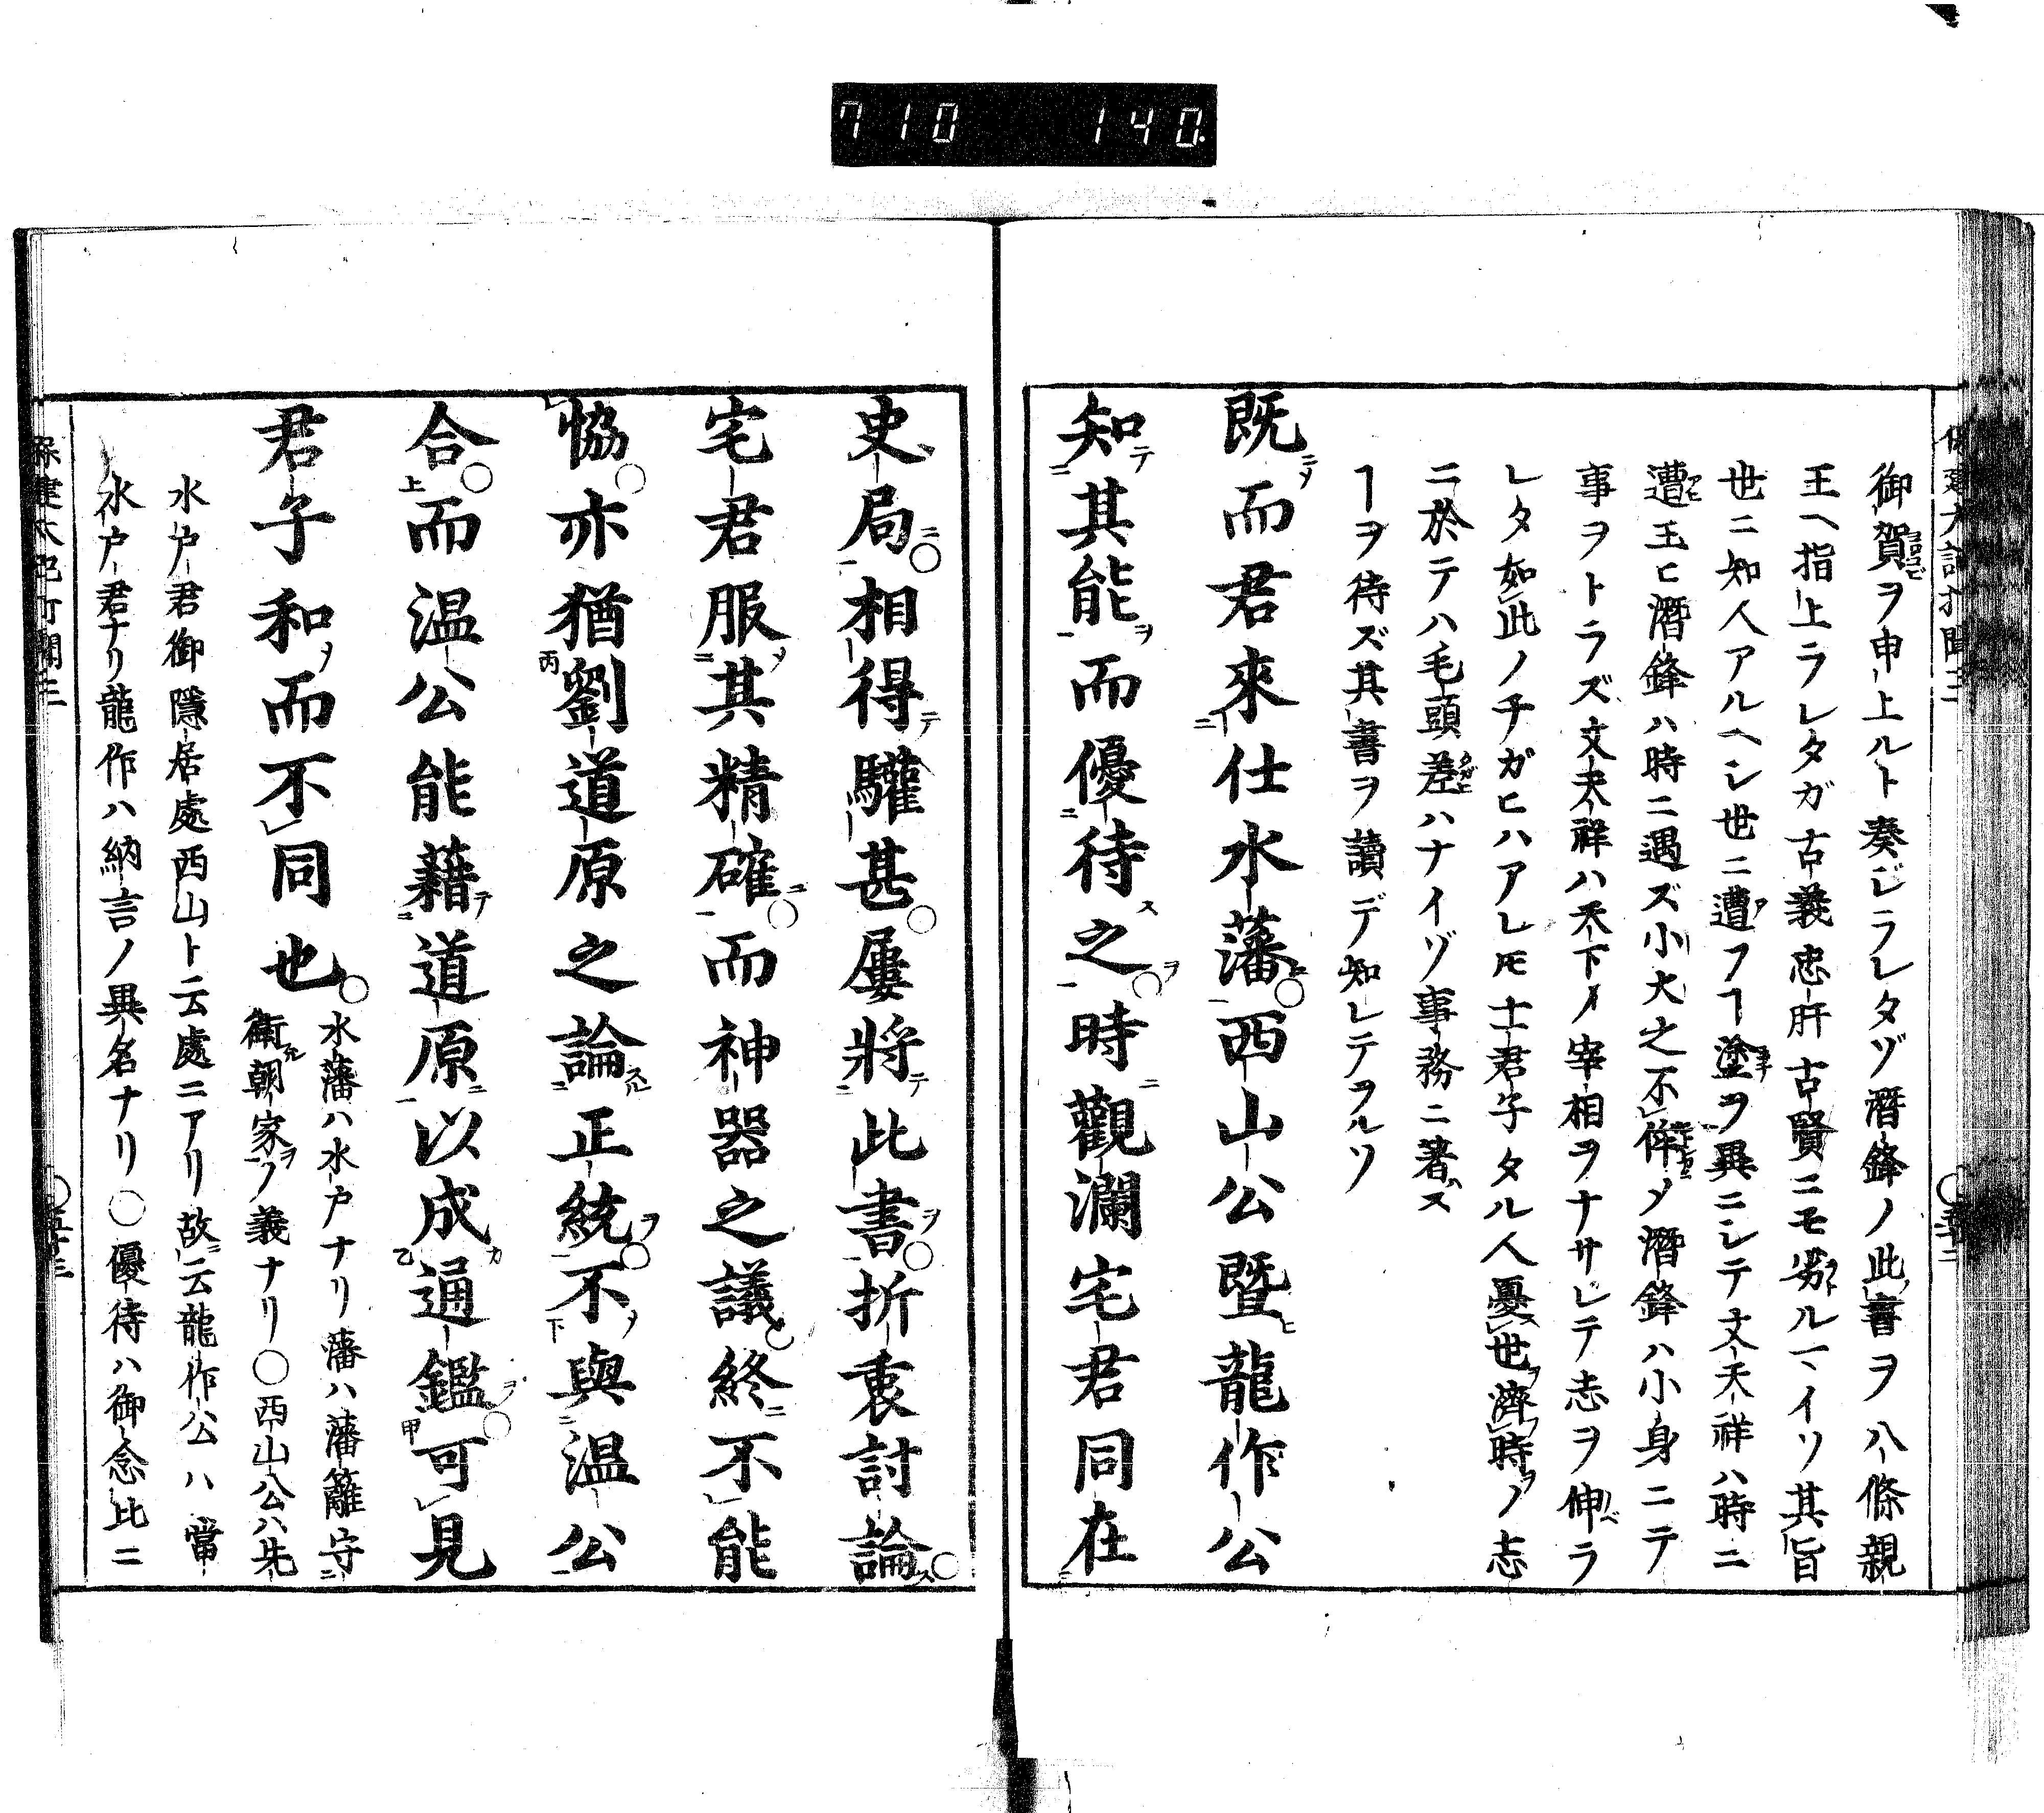 710 140.
御賀ヲ申上ルト奏ジラレタゾ潛鋒ノ此書ヲ八條親
王ヘ指上ラレタガ古義忠肝古賢ニモ劣ルマイソ其旨
世ニ知人アルヘシ世ニ遭フヿ塗ヲ異ニシテ文天祥ハ時ニ
遭玉ヒ潛鋒ハ時ニ遇ズ小大之不侔メ潛鋒ハ小身ニテ
事ヲトラズ文天祥ハ天下ノ宰相ヲナサレテ志ヲ伸ラ
レタ如此ノチガヒハアレ𪜈士君子タル人憂世濟時ノ志
ニ於テハ毛頭差ハナイゾ事務ニ著ス
ヿヲ待ズ其書ヲ讀デ知レテヲルソ
既而君來仕水藩西山公曁龍作公
知其能而優待之時觀瀾宅君同在
史局相得驩甚屢將此書折衷討論
宅君服其精確而神器之議終不能
恊亦猶劉道原之論正統不與温公
合而温公能藉道原以成通鑑可見
君子和而不同也
水藩ハ水戸ナリ藩ハ藩籬守
衛朝家ノ義ナリ〇西山公ハ先
水戸君御隱居處西山ト云處ニアリ故云龍作公ハ當
水戸君ナリ龍作ハ納言ノ異名ナリ〇優待ハ御念比ニ